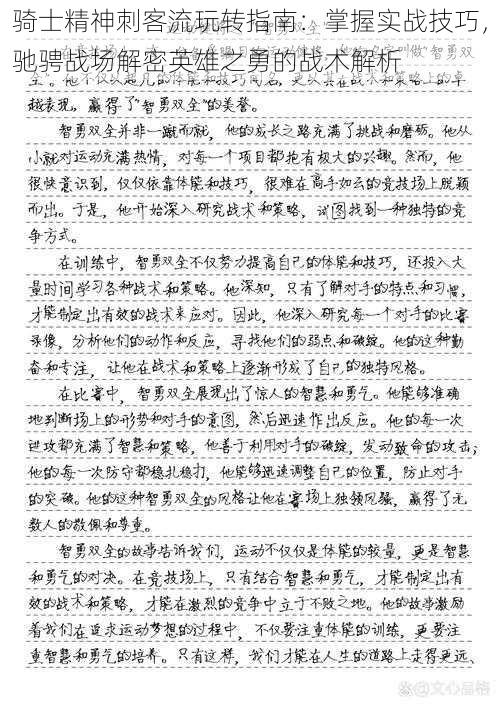 骑士精神刺客流玩转指南：掌握实战技巧，
驰骋战场解密英雄之勇的战术解析
全”。他不仅以超凡的体能和技巧闻名，更以其在战术和策略上的卓
越表现，赢得了“智勇双全”的美誉。
智勇双全并非一蹴而就，他的成长之路充满了挑战和磨砺。他从
小就对运动充满热情，对每一个项目都抱有极大的兴趣。然而，他
很快意识到，仅仅依靠体能和技巧，很难在高手如云的竞技场上脱颖
而出。于是，他开始深入研究战术和策略，试图找到一种独特的竞
争方式。
在训练中，智勇双全不仅努力提高自己的体能和技巧，还投入大
量时间学习各种战术和策略。他深知，只有了解对手的特点和习惯，
才能制定出有效的战术来应对。因此，他深入研究每一个对手的比赛
录像，分析他们的动作和反应，寻找他们的弱点和破绽。他的这种勤
奋和专注，让他在战术和策略上逐渐形成了自己的独特风格。
在比赛中，智勇双全展现出了惊人的智慧和勇气。他能够准确
地判断场上的形势和对手的意图，然后迅速作出反应。他的每一次
进攻都充满了智慧和策略，他善于利用对手的破绽，发动致命的攻击；
他的每一次防守都稳扎稳打，他能够迅速调整自己的位置，防止对手
的突破。他的这种智勇双全的风格让他在赛场上独领风骚，赢得了无
数人的敬佩和尊重。
智勇双全的故事告诉我们，运动不仅仅是体能的较量，更是智慧
和勇气的对决。在竞技场上，只有结合智慧和勇气，才能制定出有
效的战术和策略，才能在激烈的竞争中立于不败之地。他的故事激励
着我们在追求运动梦想的过程中，不仅要注重体能的训练，更要注
重智慧和勇气的培养。只有这样，我们才能在人生的道路上走得更远、
@文心品格